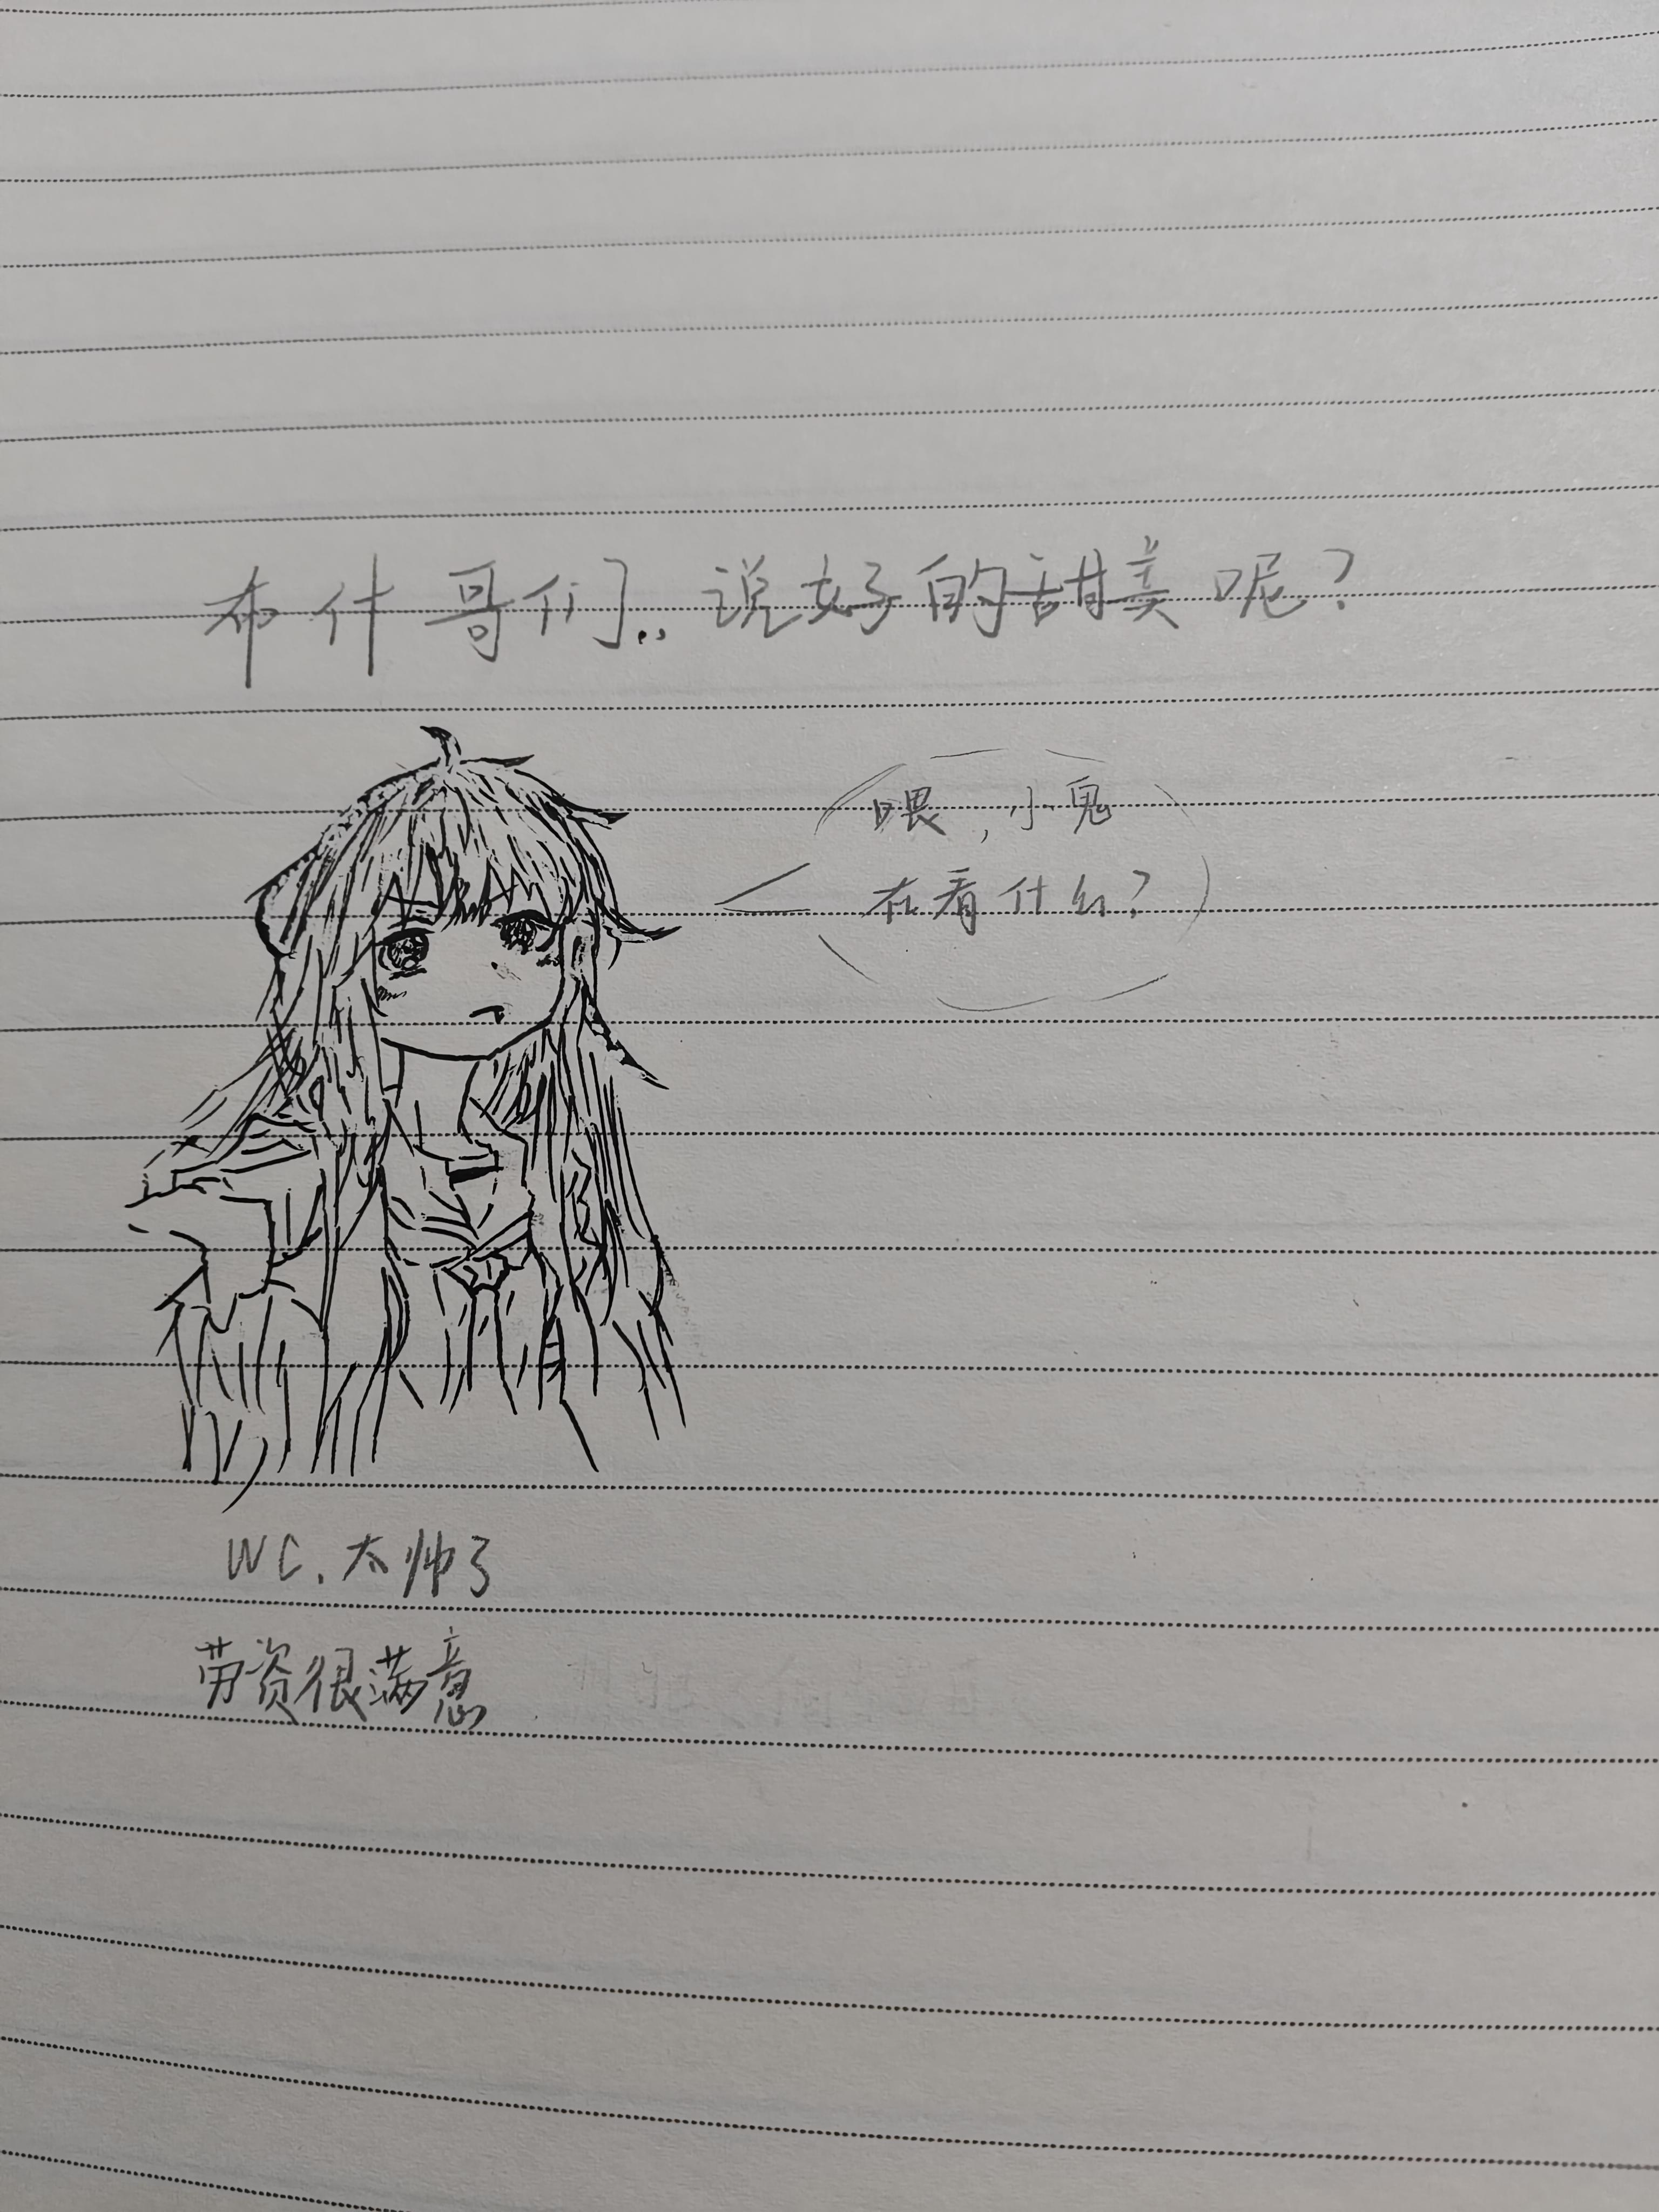 布什哥们..说好的甜美呢？
喂,小鬼
在看什么?
WC.太帅了
劳资很满意